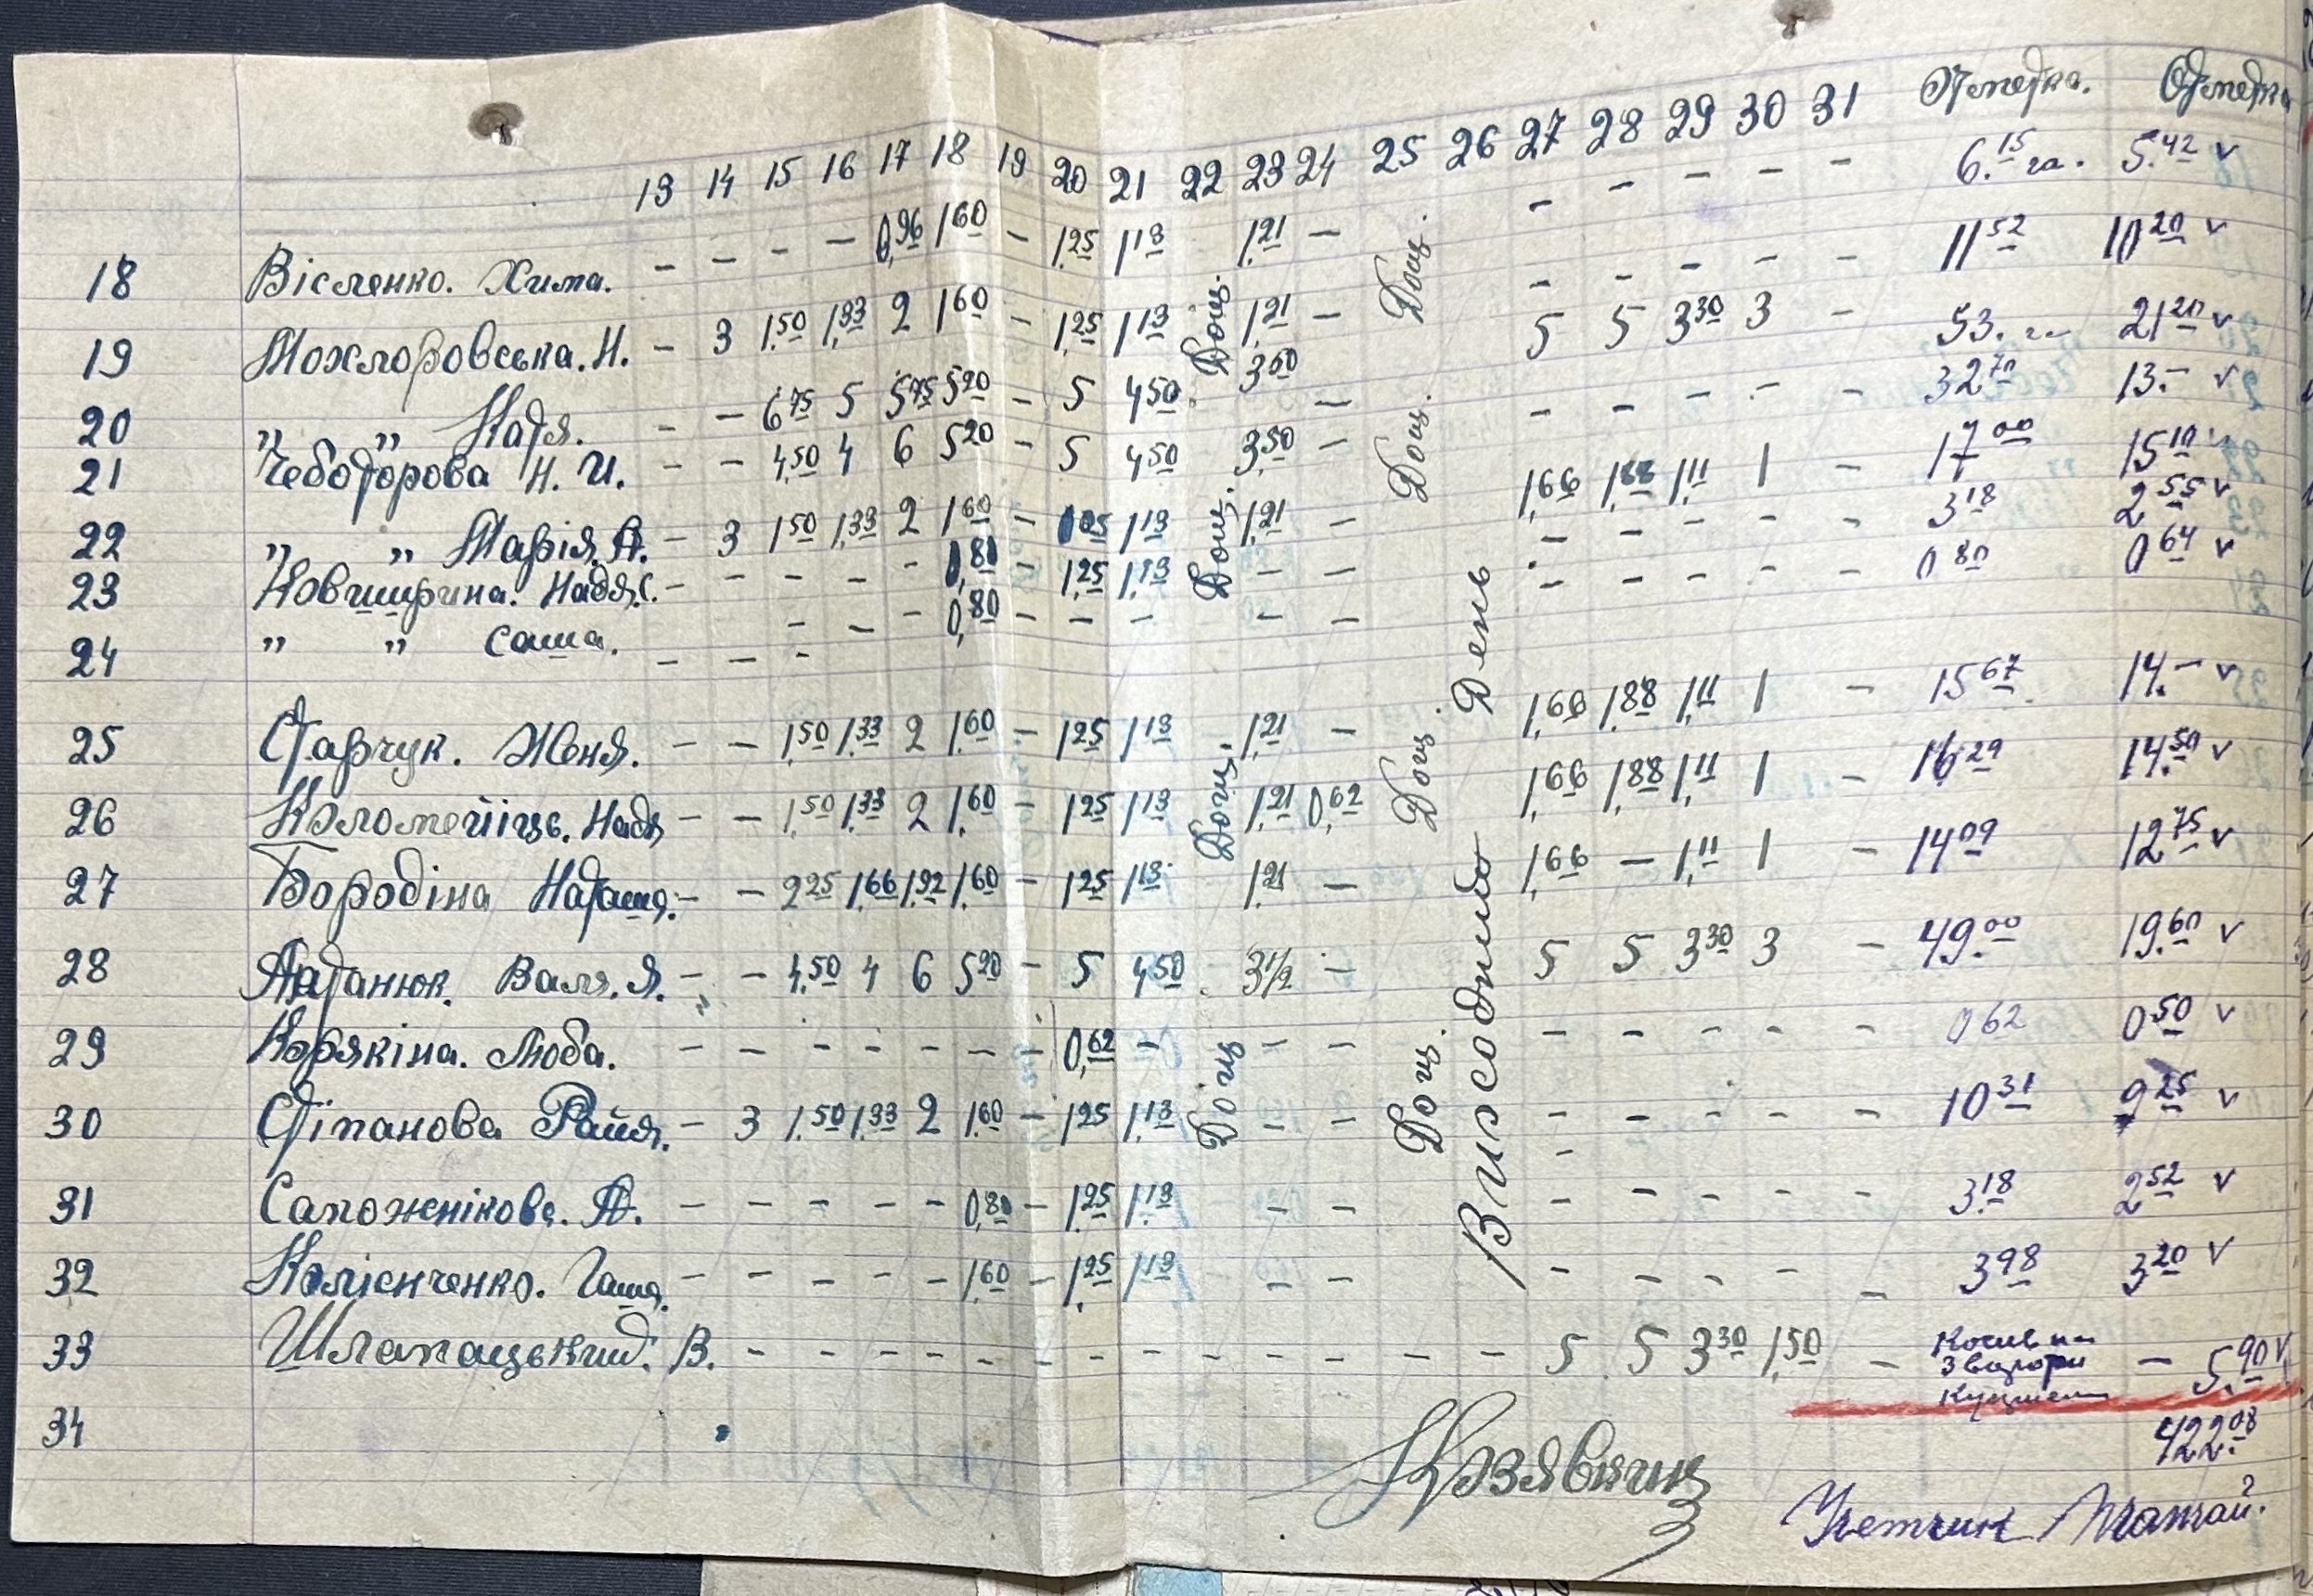 13 14 15 16 17 18 19 20 21 22 23 24 25 26 27 28 29 30 31 Отметка. Отметка
18 Вісленко. Хима. - - - - 0,96 1,60 - 1,25 1,13 1,21 - - - - - - 6.15 га. 5.42 v
19 Мохлоровська. Н. - 3 1,50 1,33 2 1,60 - 1,25 1,13 1,21 - - - - - - 11 52 10 20 v
20 " " Надя. - - 6 75 5 5 75 5 20 - 5 4 50 3 60 - 5 5 3 30 3 - 53. га 21 20 v
21 Чеботорова Н. И. - - 4,50 4 6 5 20 - 5 4 50 3,50 - - - - - - 32 70 13.- v
22 " " Марія. А. - 3 1 50 1,33 2 1 60 - 1,13 1,21 - 1,66 1,88 1,11 1 - 17 00 15 10 v
23 Надя. - - - - - 0,80 - 1,25 1,13 - - - - - - - 3 18 2 55 v
24 " " Саша. - - - - - 0,80 - - - - - - - - - - 0 80 0 64 v
25 Старчук. Женя. - - 1,50 1,33 2 1,60 - 1 25 1 13 1,21 - 1,66 1,88 1,11 1 - 15 67 14.- v
26 Коломейіце. Надя - - 1,50 1,33 2 1,60 - 1 25 1 13 1,21 0,62 1,66 1,88 1,11 1 - 16 29 14.50 v
27 Бородіна Наташа. - - 2 25 1,66 1,92 1,60 - 1 25 1 13 1,21 - 1,66 - 1,11 1 - 14 09 12 75 v
28 Валя. Я. - - 4,50 4 6 5 20 - 5 4 50 3 1/2 - 5 5 3 30 3 - 49.00 19.60 v
29 Корякіна. Люба. - - - - - - - 0,62 - - - - - - - - 0 62 0 50 v
30 Стіпанова Райя. - 3 1,50 1,33 2 1,60 - 1 25 1,13 - - - - - - - 10 31 9 25 v
31 Сапожнікове. А. - - - - - 0,80 - 1,25 1,13 - - - - - - - 3.18 2 52 v
32 Колієнченко. Гаша. - - - - - 1,60 - 1,25 1,13 - - - - - - - 3 98 3 20 v
33 Шлапацький. В. - - - - - - - - - - - - - - 5 5 3 30 1,50 - Косив на - 5.90 v
34
Дощ.
Дощ.
Дощ.
Дощ
Дощ.
Дощ.
Дощ.
Дощ.
Вихсодного День
422.08
Козявкин
Учетчик